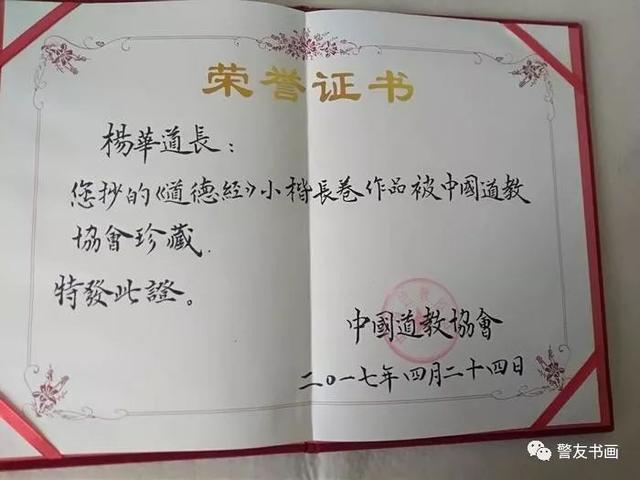 荣誉证书
楊華道長：
您抄的《道德經》小楷長卷作品被中國道教
協會珍藏.
特發此證。
中國道教協會
二〇一七年四月二十四日
警友书画